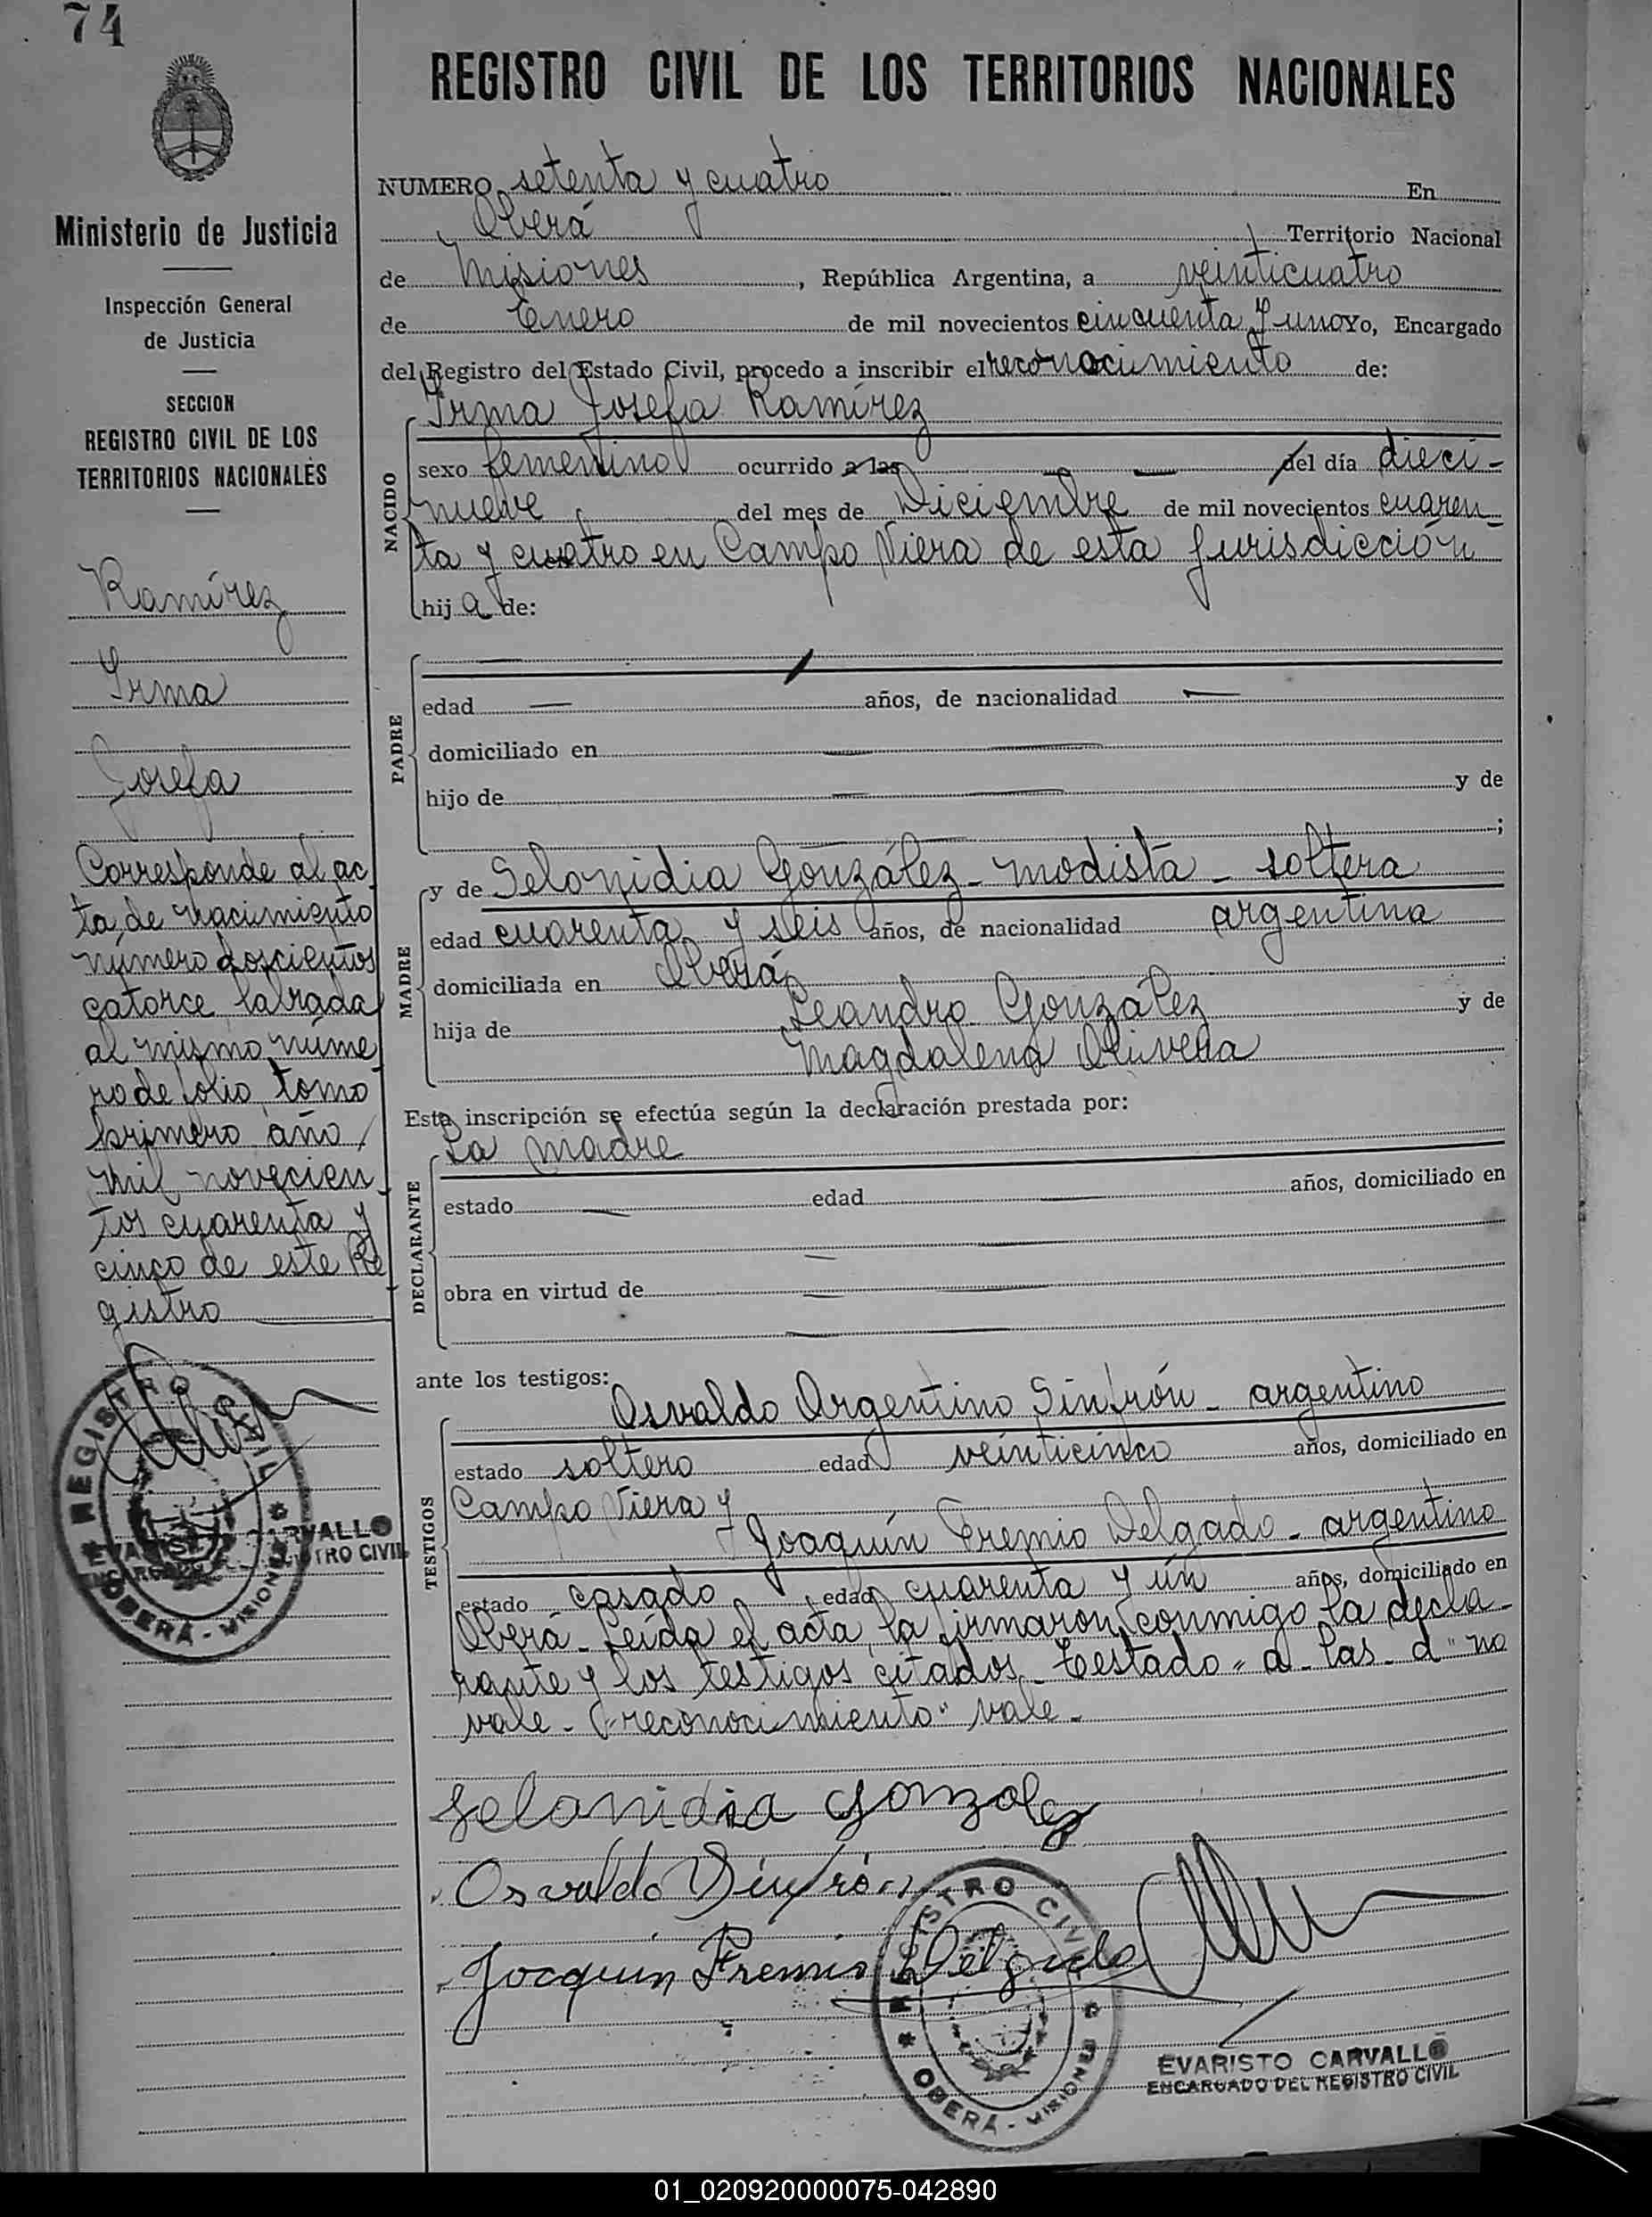 74
REGISTRO CIVIL DE LOS TERRITORIOS NACIONALES
Ministerio de Justicia
Inspección General
de Justicia
SECCION
REGISTRO CIVIL DE LOS
TERRITORIOS NACIONALES
Ramírez
Irma
Josefa
Corresponde al ac
ta de nacimiento
número doscientos
catorce labrada
al mismo núme
ro de folio, tomo
primero año
mil novecien
tos cuarenta y
cinco de este Re
gistro
REGISTRO CIVIL
OBERÁ - MISIONES
NUMERO setenta y cuatro En
Oberá Territorio Nacional
de Misiones, República Argentina, a veinticuatro
de Enero de mil novecientos cincuenta y uno Yo, Encargado
del Registro del Estado Civil, procedo a inscribir el reconocimiento de:
Irma Josefa Ramírez
NACIDO
sexo femenino ocurrido a las — — del día dieci-
nueve del mes de Diciembre de mil novecientos cuaren-
ta y cuatro en Campo Viera de esta Jurisdicción
hij a de:
PADRE
edad — años, de nacionalidad —
domiciliado en — —
hijo de — — y de
;
MADRE
y de Selonidia González - modista - soltera
edad cuarenta y seis años, de nacionalidad argentina
domiciliada en Oberá
hija de Leandro González y de
Magdalena Olivera
Esta inscripción se efectúa según la declaración prestada por:
DECLARANTE
La madre
estado — edad — años, domiciliado en
— —
obra en virtud de — —
—
ante los testigos:
TESTIGOS
Osvaldo Argentino Sinfrón - argentino
estado soltero edad veinticinco años, domiciliado en
Campo Viera y
Joaquín Fremio Delgado - argentino
estado casado edad cuarenta y ún años, domiciliado en
Oberá - Leída el acta, la firmaron conmigo la decla-
rante y los testigos citados - Testado " a - las - d " no
vale - "reconocimiento" vale -
Selonidia Gonzalez
Osvaldo Sinfrón
Joaquin Fremio Delgado
REGISTRO CIVIL
OBERÁ - MISIONES
EVARISTO CARVALLO
ENCARGADO DEL REGISTRO CIVIL
01_020920000075-042890